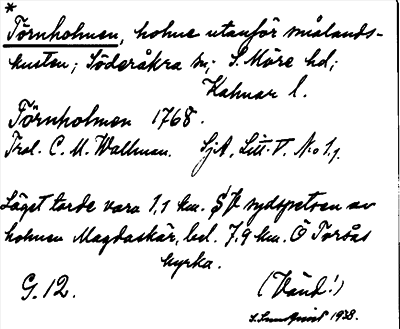 *
Törnholmen, holme utanför smålands-
kusten; Söderåkra sn; S. Möre hd;
Kalmar l.
Törnholmen 1768.
Trol. C. M. Wallman. SjA, Litt. V. No 1.
Läget torde vara 1,1 km. SV sydspetsen av
holmen Magdaskär, bel. 7,9 km. Ö Torsås
kyrka.
G. 12. (Vänd!)
1938.